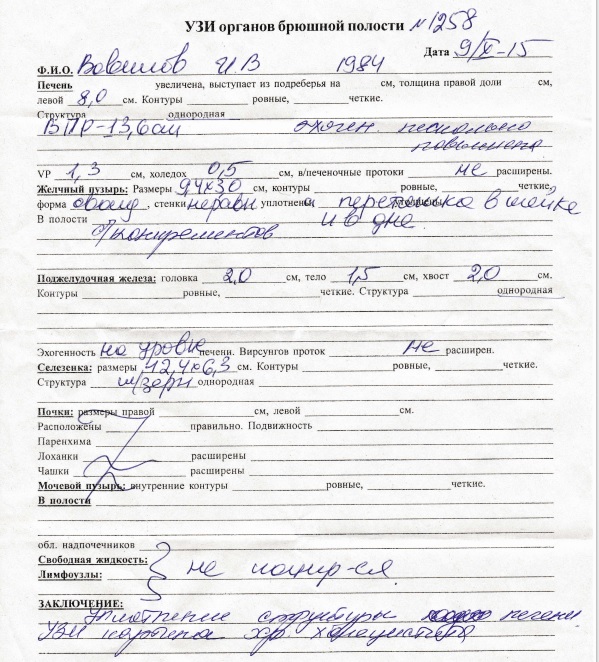 УЗИ органов брюшной полости №1258
Дата 9/X-15
Ф.И.О. И.В 1984
Печень увеличена, выступает из подреберья на см, толщина правой доли см,
левой 8,0 см. Контуры ровные, четкие.
Структура однородная
ВПР-13,6см эхоген. несколько
повышена
VP 1,3 см, холедох 0,5 см, в/печеночные протоки не расширены.
Желчный пузырь: Размеры 94х30 см, контуры ровные, четкие,
форма овоид, стенки неравн уплотнены, перетяжка в шейке
В полости и в дне.
конкрементов
Поджелудочная железа: головка 2,0 см, тело 1,5 см, хвост 2,0 см.
Контуры ровные, четкие. Структура однородная
Эхогенность на уровне печени. Вирсунгов проток не расширен.
Селезенка: размеры 12,4х6,3 см. Контуры ровные, четкие.
Структура м/зерн однородная
Почки: размеры правой см, левой см.
Расположены правильно. Подвижность
Паренхима
Лоханки расширены
Чашки расширены
Мочевой пузырь: внутренние контуры ровные, четкие.
В полости
обл. надпочечников
Свободная жидкость:
Лимфоузлы: не лоцир-ся
ЗАКЛЮЧЕНИЕ:
Уплотнение структуры печени
УЗИ картина хр. холецистита